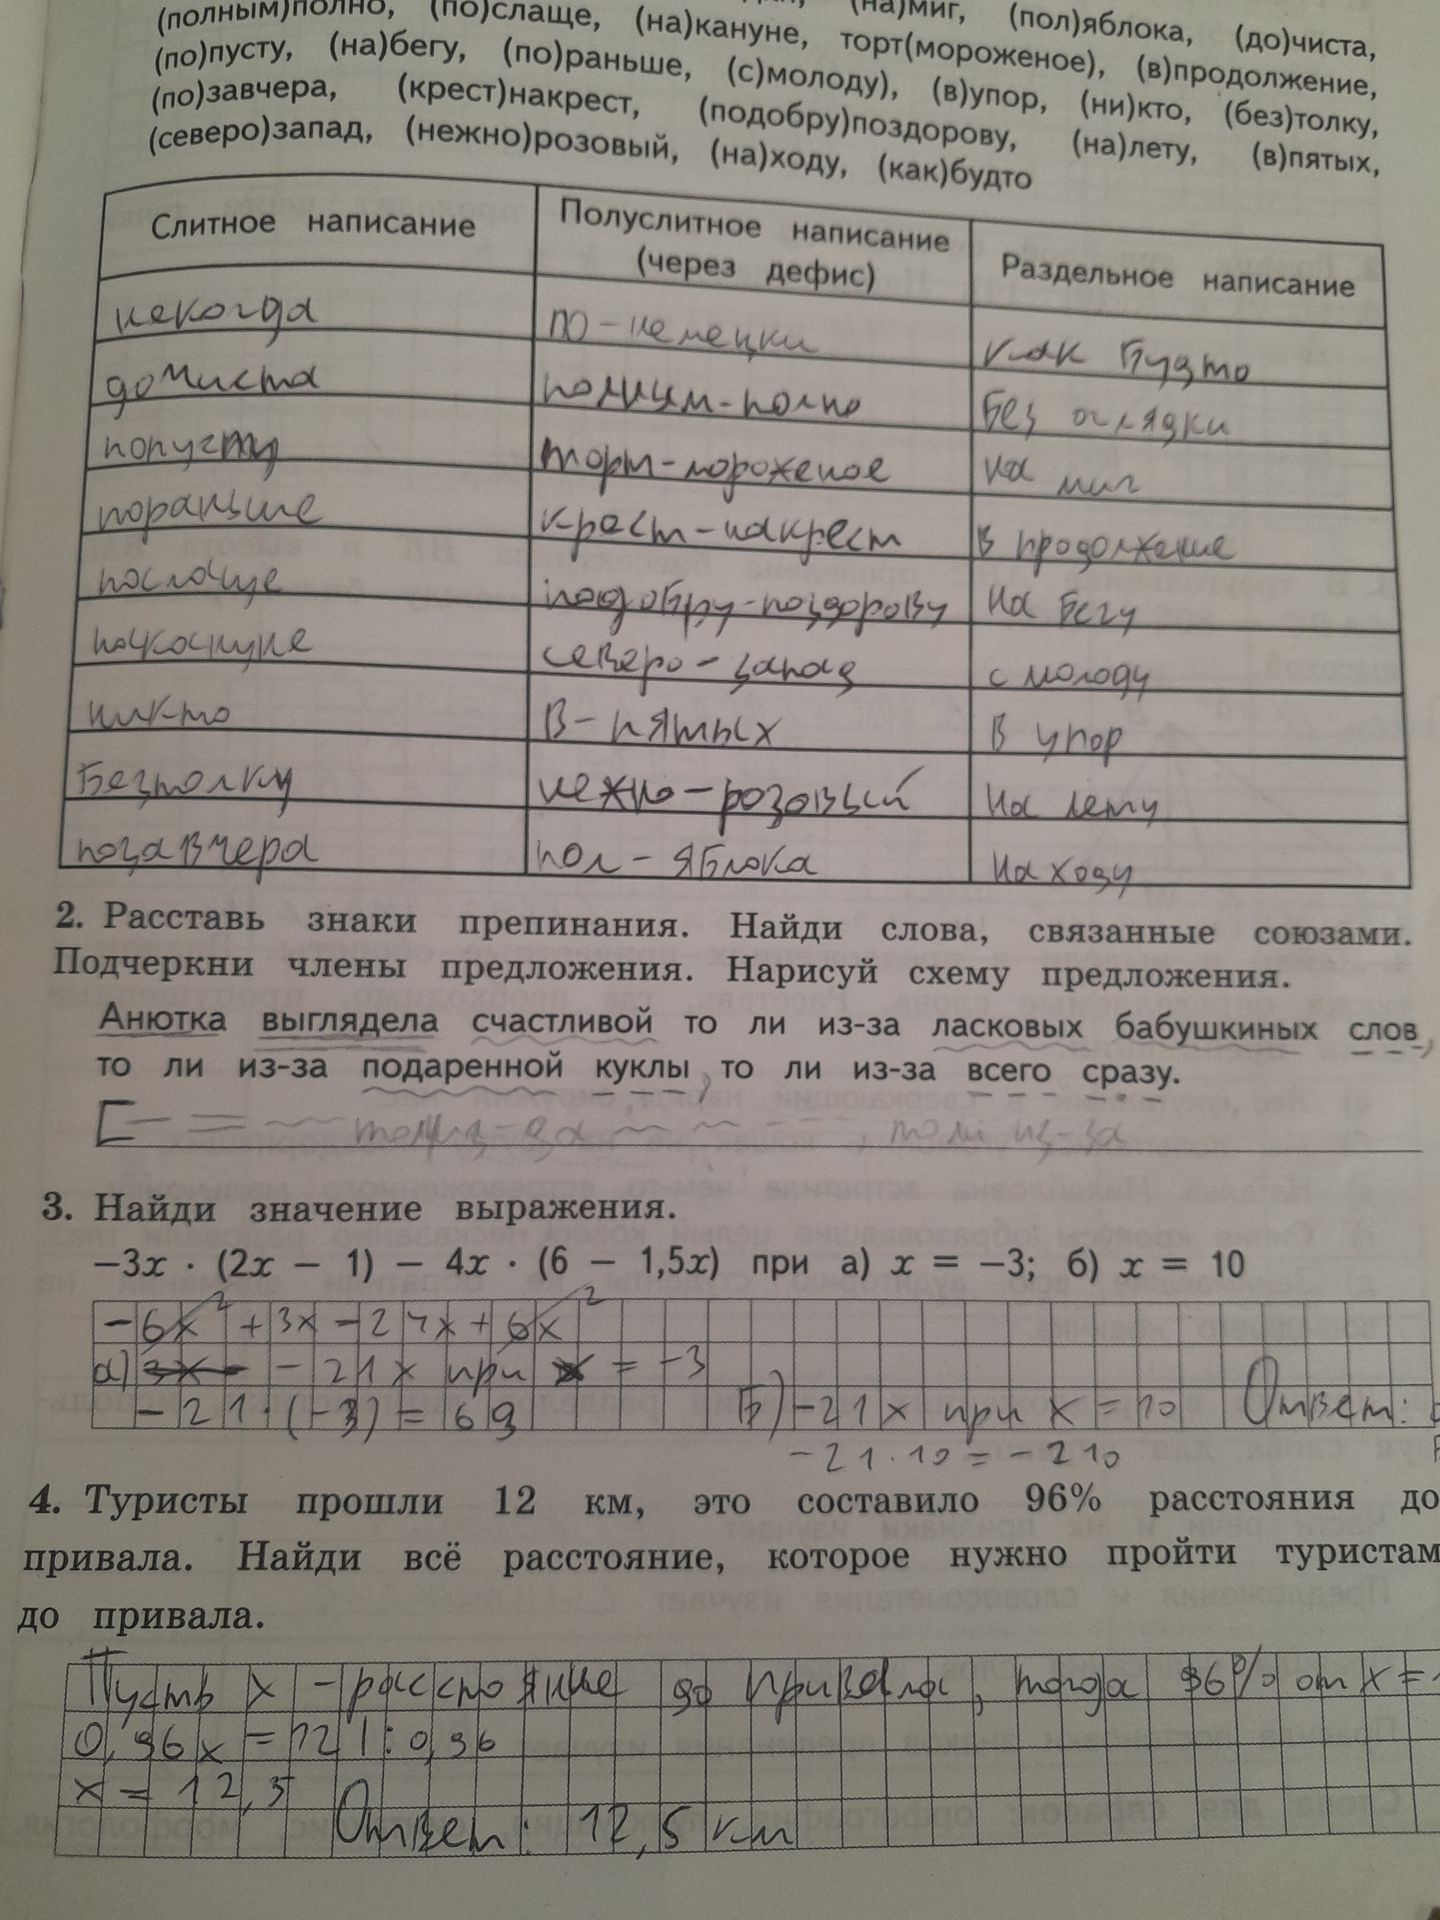 (полным)полно, (по)слаще, (на)кануне, (на)миг, (пол)яблока, (до)чиста,
(по)пусту, (на)бегу, (по)раньше, торт(мороженое), (в)продолжение,
(по)завчера, (крест)накрест, (с)молоду), (в)упор, (ни)кто, (без)толку,
(северо)запад, (нежно)розовый, (подобру)поздорову, (на)лету, (в)пятых,
(на)ходу, (как)будто
Слитное написание
Полуслитное написание (через дефис)
Раздельное написание
некогда
по-немецки
как будто
дочиста
полным-полно
без оглядки
попусту
торт-мороженое
на миг
пораньше
крест-накрест
в продолжение
послаще
подобру-поздорову
на бегу
накануне
северо-запад
с молоду
никто
в-пятых
в упор
безтолку
нежно-розовый
на лету
позавчера
пол-яблока
на ходу
2. Расставь знаки препинания. Найди слова, связанные союзами.
Подчеркни члены предложения. Нарисуй схему предложения.
Анютка выглядела счастливой то ли из-за ласковых бабушкиных слов,
то ли из-за подаренной куклы, то ли из-за всего сразу.
то ли из-за , то ли из-за
3. Найди значение выражения.
−3x · (2x − 1) − 4x · (6 − 1,5x) при а) x = −3; б) x = 10
-6x² + 3x - 24x + 6x²
а) - 21x при x = -3
-21·(-3) = 63
Б) -21x при x = 10 Ответ:
-21·10 = -210
4. Туристы прошли 12 км, это составило 96% расстояния до
привала. Найди всё расстояние, которое нужно пройти туристам
до привала.
Пусть x - расстояние до привала, тогда 96% от x =
0,96x = 12 | : 0,96
x = 12,5
Ответ: 12,5 км